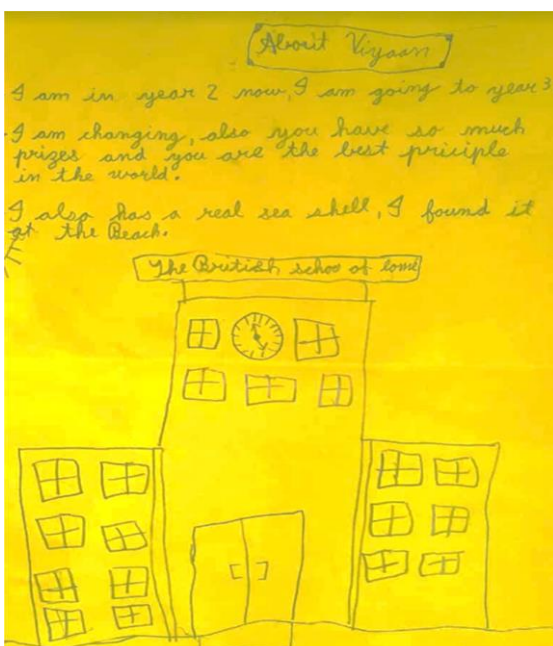 About Viyaan
I am in year 2 now, I am going to year 3
I am changing, also you have so much
prizes and you are the best priciple
in the world.
I also has a real sea shell, I found it
at the Beach.
The British schoo of lomé